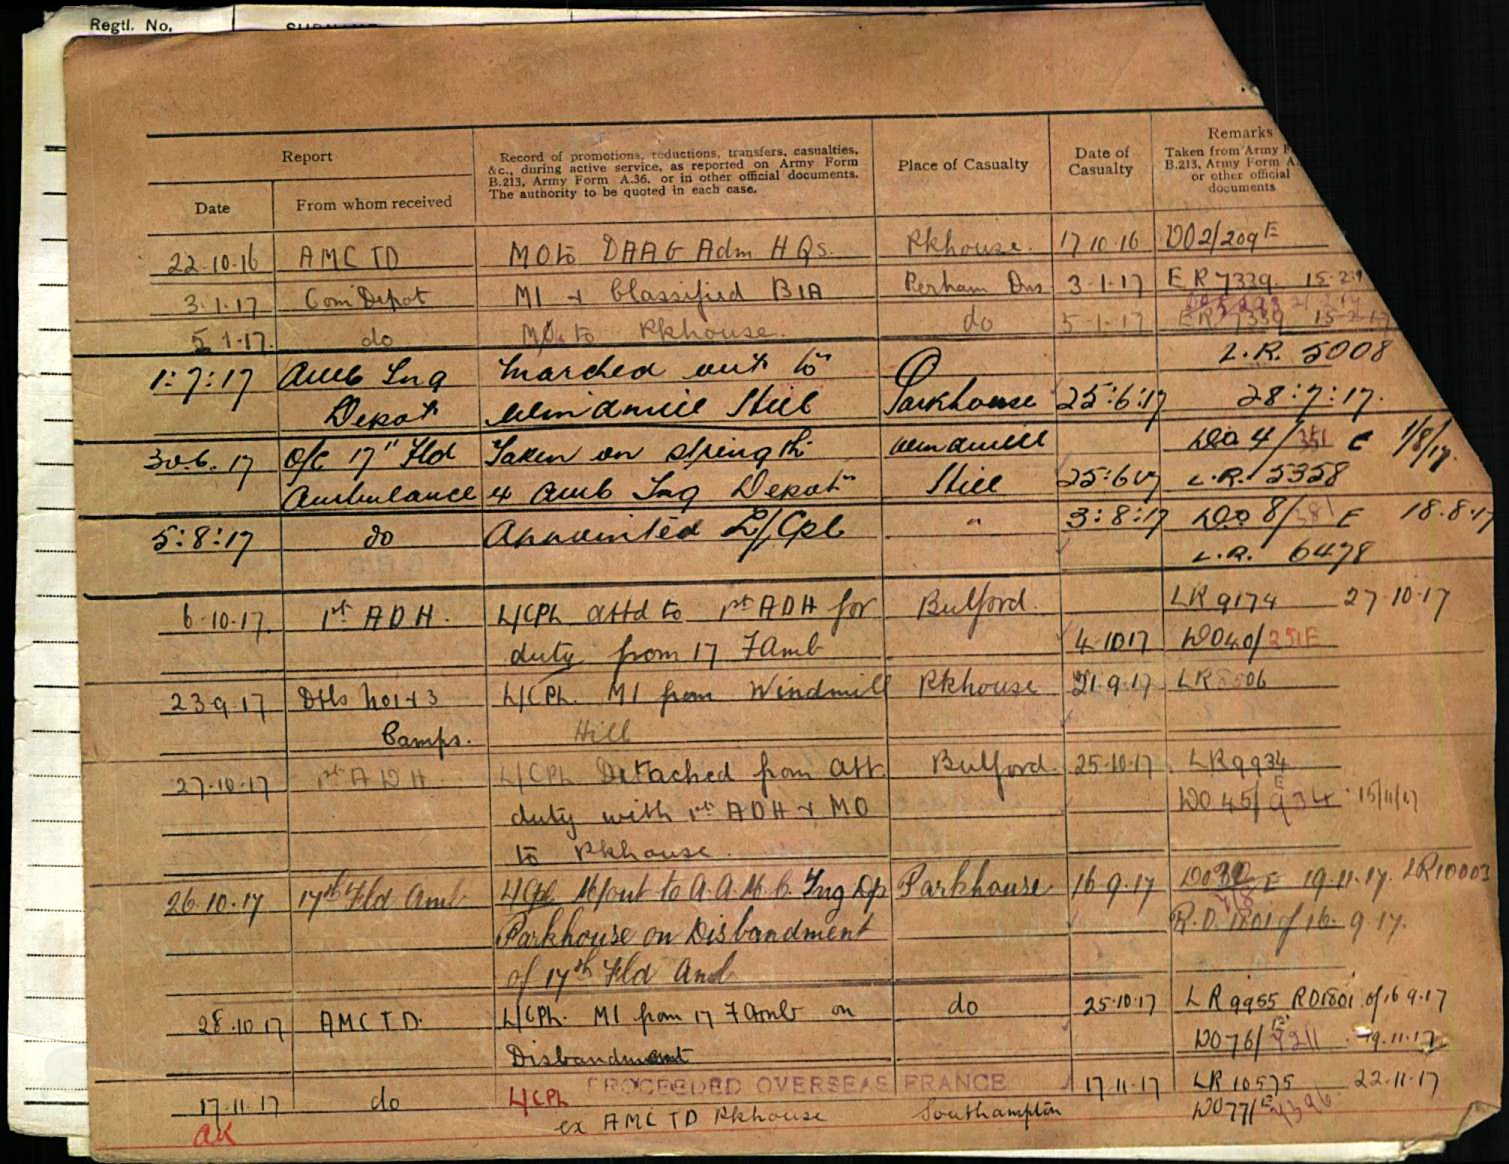 Regtl. No.
Report
Date
From whom received
Record of promotions, reductions, transfers, casualties,
&c., during active service, as reported on Army Form
B.213, Army Form A.36, or in other official documents.
The authority to be quoted in each case.
Place of Casualty
Date of
Casualty
Remarks
Taken from Army F
B.213, Army Form A.
or other official
documents
22.10.16 AMCTD MO to DAAG Adm HQs. Pkhouse. 17 10 16 DO2/209 E
3.1.17 Com Depot MI & Classified B1A Perham Dns 3-1-17 ER 7339 15-2-1
5 1.17. do MO to Pkhouse. do 5-1-17 ER 7339 15-2-17
L.R. 5008
1:7:17 Amb Tng Marched out to
Depot Windmill Hill Parkhouse 25:6:17 28:7:17.
30.6.17 O/C 17" Fld Taken on strength Windmill DO 4/351 E 1/8/17.
Ambulance & Amb Tng Depot Hill 25:6:17 L.R. 5358
5:8:17 do Appointed L/Cpl " 3:8:17 DO 8/381 E 18.8.17
L.R. 6478
6.10.17. 1st ADH. L/CPL attd to 1st ADH for Bulford. LR 9174 27.10.17
duty from 17 F Amb 4.10.17 DO40/351E
23.9.17 Dtls No 1 & 3 L/CPL. MI from Windmill Pkhouse 21.9.17 LR 8506
Camps. Hill
27.10.17 1st ADH L/CPL Detached from att. Bulford. 25.10.17 LR9934
duty with 1st ADH & MO DO 45/E934 15/11/17
to Pkhouse.
26.10.17 17th Fld Amb L/Cpl M/out to A.A.M.C. Tng Dp Parkhouse 16.9.17 E 19.11.17. LR10003
Parkhouse on Disbandment R.O. 1801 of 16.9.17.
of 17th Fld Amb
28.10.17 AMCTD. L/CPL. MI from 17 F Amb on do 25.10.17 LR 9955 RO1801 of 16 9.17
Disbandment DO76/ 19.11.17
17.11.17 do L/CPL PROCEEDED OVERSEAS FRANCE 17.11.17 LR 10575 22.11.17
AK ex AMCTD Pkhouse Southampton DO77/E